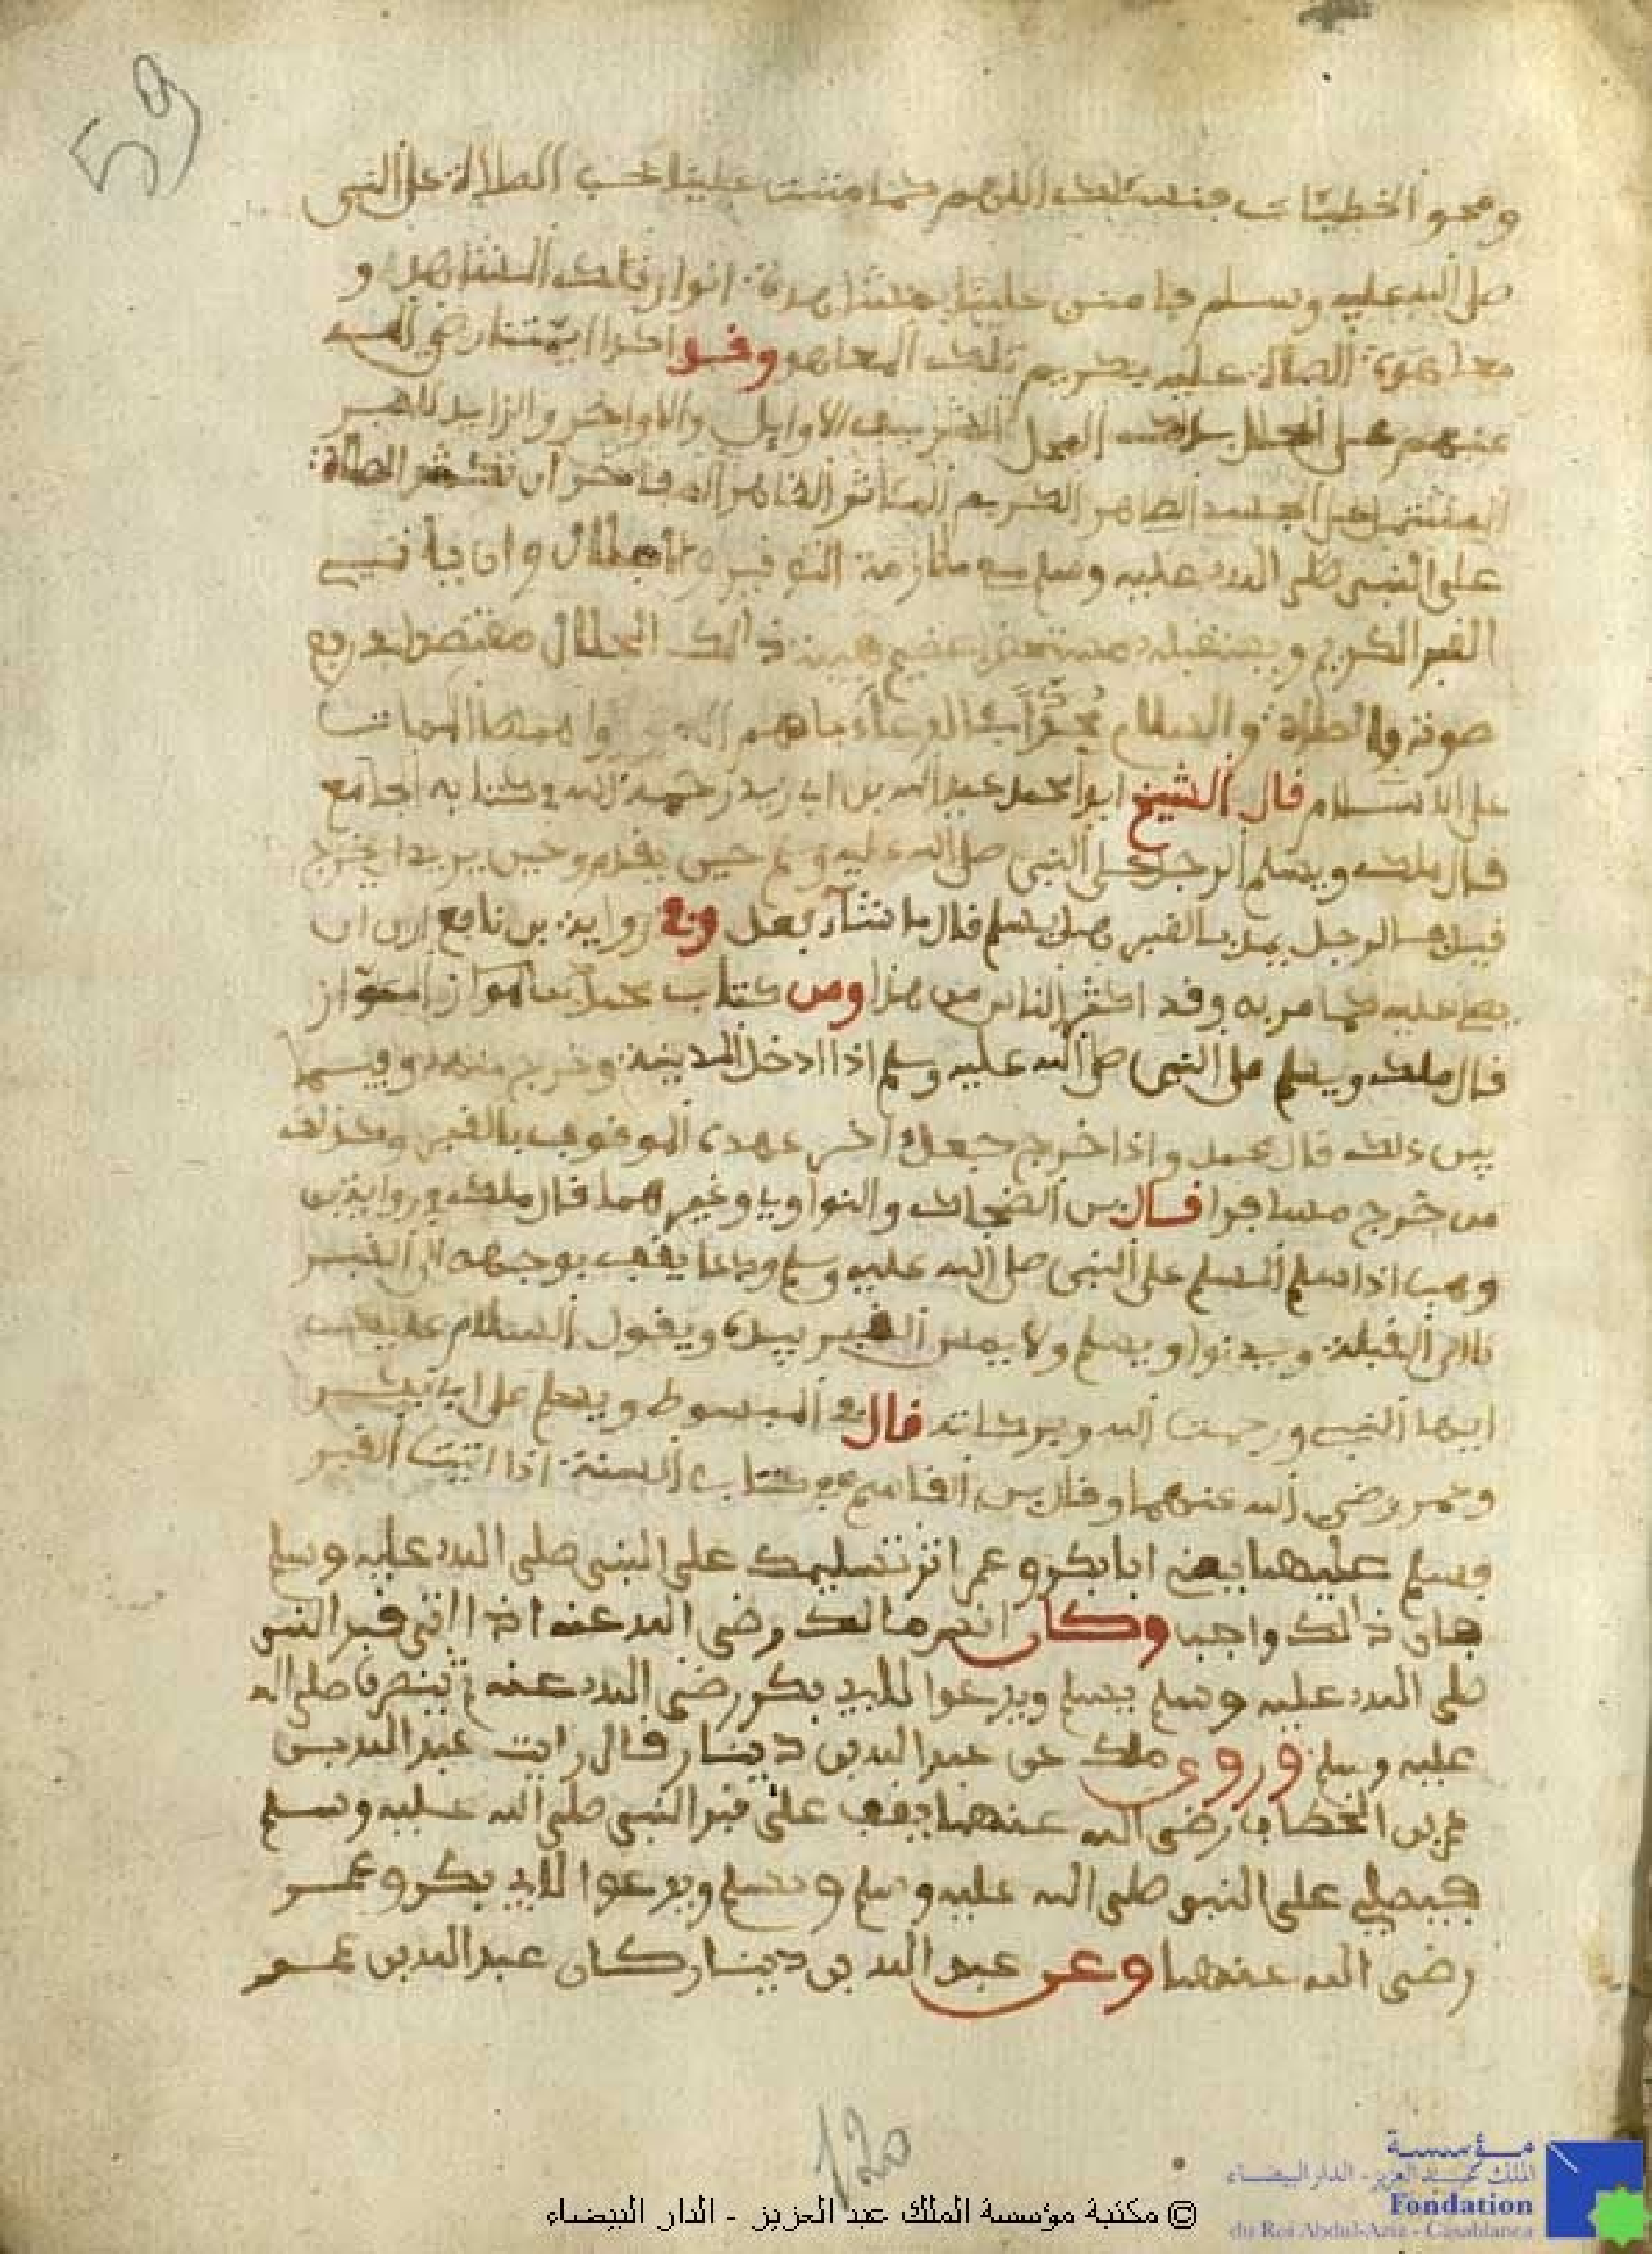 59
ومحو الخطيئات فنسئلك اللهم كما مننت علينا بحب الصلاة على النبي
صلى الله عليه وسلم بما منن علينا بمشاهدة انوار تلك المشاهد و
معاهدة الصلاة عليه بكريم تلك المعاهد وقد اكد ايمتنا رضي الله
عنهم على الداخل بذلك المحل الشريف الاوايل والاواخر والزايد للقبر
المشتمل على الجسد الطاهر الكريم المئاثر الظاهر المفاخر ان تكثر الصلاة
على النبي صلى الله عليه وسلم ملازمة التوقير والاجلال وان ياتي
القبر الكريم ويستقبله مستحضرا عظيم هيبة ذالك الجلال مقتصدا في رفع
صوته والصلاة والسلام الدعاء باهم
على الاسلام قال الشيخ ابوا محمد عبد الله بن ابي زيد رحمه الله في كتابه الجامع
قال ملك ويسلم الرجل على النبي صلى الله عليه وسلم حين يقدم وحين يريد ان يخرج
قيل هل الرجل يمر بالقبر هل يسلم قال ما شآء فعل وفي رواية بن نافع ارى ان
يسلم عليه كما مر به وقد اكثر الناس من هذا ومن كتاب محمد بن المواز
قال ملك ويسلم على النبي صلى الله عليه وسلم اذا ادخل المدينة وخرج منها وفيما
بين ذلك قال محمد واذا خرج جعل اخر عهده الوقوف بالقبر وكذلك
من خرج مسافرا قال بن الضحاك والنواوي وغيرهما قال ملك في رواية بن
وهب اذا سلم المسلم على النبي صلى الله عليه وسلم ودعا يقف بوجهه الى القبر
لا الى القبلة ويدنوا ويسلم ولا يمس القبر بيده ويقول السلام عليك
ايها النبي ورحمت الله وبركاته قال في المبسوط ويسلم على ابي بكر
وعمر رضي الله عنهما وقال بن القاسم في كتاب السنة اذا اتيت القبر
وسلم عليهما يعني ابا بكر وعمر اثر تسليمك على النبي صلى الله عليه وسلم
فان ذالك واجب وكان انس مالك رضي الله عنه اذا اتى قبر النبي
صلى الله عليه وسلم يسلم ويدعوا لابي بكر رضي الله عنه ثم ينصرف صلى الله
عليه وسلم وروى ملك عن عبد الله بن دينار قال رايت عبد الله بن
عمر بن الخطاب رضي الله عنهما يقف على قبر النبي صلى الله عليه وسلم
فيصلي على النبي صلى الله عليه وسلم ويسلم ويدعوا لابي بكر وعمر
رضي الله عنهما وعن عبد الله بن دينار كان عبد الله بن عمر
120
© مكتبة مؤسسة الملك عبد العزيز - الدار البيضاء
مؤسسة
الملك عبد العزيز - الدار البيضاء
Fondation
du Roi Abdul-Aziz - Casablanca